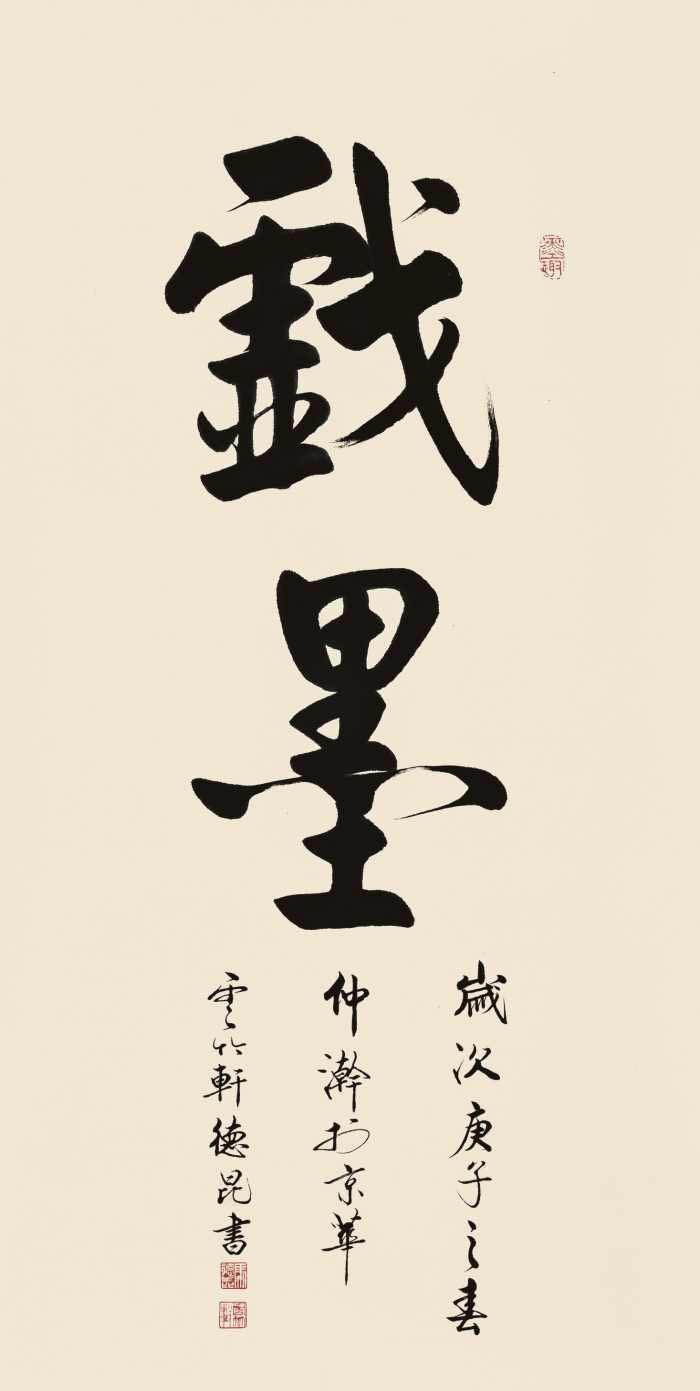 戲墨
歲次庚子之春
仲瀚於京華
雲竹軒德昆書